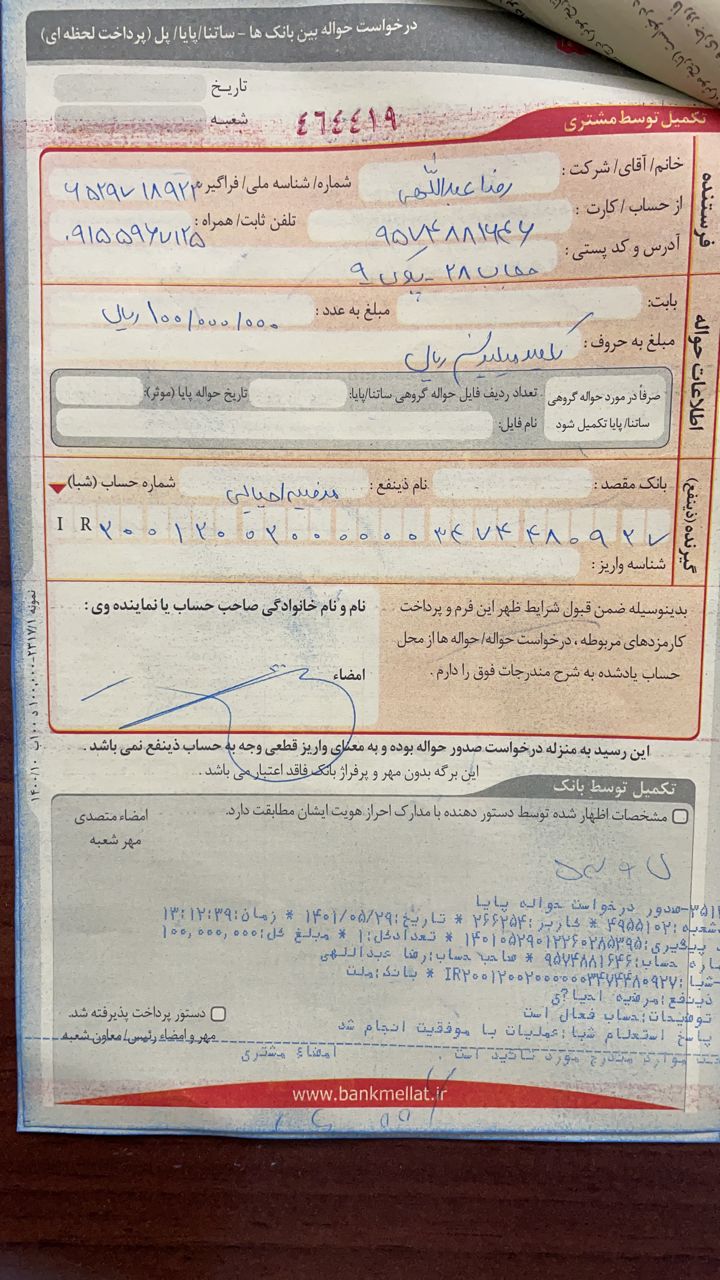 درخواست حواله بین بانک ها - ساتنا/پایا/ پل (پرداخت لحظه ای)
تاریخ
شعبه
۴۶۴۴۱۹
تکمیل توسط مشتری
فرستنده
خانم/ آقای/ شرکت: رضا عبداللهی شماره/ شناسه ملی/ فراگیر:
از حساب / کارت: ۹۵۷۴۸۸۱۶۴۶ تلفن ثابت/ همراه: ۰۹۱۵۵۹۶۷۱۲۵
آدرس و کد پستی: ۲۸ - پلاک ۹
اطلاعات حواله
بابت: مبلغ به عدد: ۱۰۰/۰۰۰/۰۰۰ ریال
مبلغ به حروف: یکصد میلیون ریال
صرفاً در مورد حواله گروهی ساتنا/پایا تکمیل شود
تعداد ردیف فایل حواله گروهی ساتنا/پایا: تاریخ حواله پایا (موثر):
نام فایل:
گیرنده (ذینفع)
بانک مقصد: نام ذینفع: مرضیه احیائی شماره حساب (شبا)
I R ۲۰۰۱۲۰۰۲۰۰۰۰۰۰۳۴۷۴۴۸۰۹۲۷
شناسه واریز:
بدینوسیله ضمن قبول شرایط ظهر این فرم و پرداخت
کارمزدهای مربوطه، درخواست حواله/ حواله ها از محل
حساب یادشده به شرح مندرجات فوق را دارم.
نام و نام خانوادگی صاحب حساب یا نماینده وی:
امضاء
این رسید به منزله درخواست صدور حواله بوده و به معنای واریز قطعی وجه به حساب ذینفع نمی باشد.
این برگه بدون مهر و پرفراژ بانک فاقد اعتبار می باشد.
تکمیل توسط بانک
مشخصات اظهار شده توسط دستور دهنده با مدارک احراز هویت ایشان مطابقت دارد.
امضاء متصدی
مهر شعبه
۳۵۱۲-صدور درخواست حواله پایا
شعبه:۴۹۵۵۱۰۲ * کاربر:۲۶۶۲۵۴ * تاریخ:۱۴۰۱/۰۵/۲۹ * زمان:۱۳:۱۲:۳۹
پیگیری:۱۴۰۱۰۵۲۹۰۱۲۲۶۰۲۸۵۳۹۵ * تعدادکل:۱ * مبلغ کل:۱۰۰,۰۰۰,۰۰۰
حساب:۹۵۷۴۸۸۱۶۴۶ * صاحب حساب:رضا عبداللهی
شبا:IR۲۰۰۱۲۰۰۲۰۰۰۰۰۰۳۴۷۴۴۸۰۹۲۷ * بانک:ملت
ذینفع:مرضیه احیا?ی
توضیحات:حساب فعال است
پاسخ استعلام شبا:عملیات با موفقیت انجام شد
موارد مندرج مورد تائید است. امضاء مشتری
دستور پرداخت پذیرفته شد.
مهر و امضاء رئیس/ معاون شعبه
www.bankmellat.ir
نمونه ۲۳۱۷/۱-۱۰۰,۰۰۰ د ۱۰۰ب ۱۴۰۰/۱۰